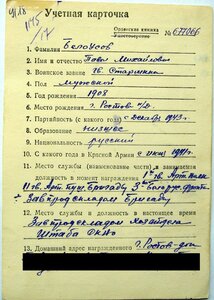 Учетная карточка
Орденская книжка
Удостоверение
№ 677066
1. Фамилия Белоусов
2. Имя и отчество Павел Михайлович
3. Воинское звание гв. Старшина
4. Пол мужской
5. Год рождения 1908
6. Место рождения г. Ростов н/Д
7. Партийность (с какого года) с декабр 1943 г.
8. Образование низшее
9. Национальность русский
10. С какого года в Красной Армии с июня 1941 г.
11. Место службы (наименование части) и занимаемая
должность в момент награждения 1 гв. Арт.
11 гв. Арт. Пуш. Бригады 3
Завпродскладом Бригады
12. Место службы и должность в настоящее время
Завпродскладом
Штаба
13. Домашний адрес награжденного г. Ростов-Дон